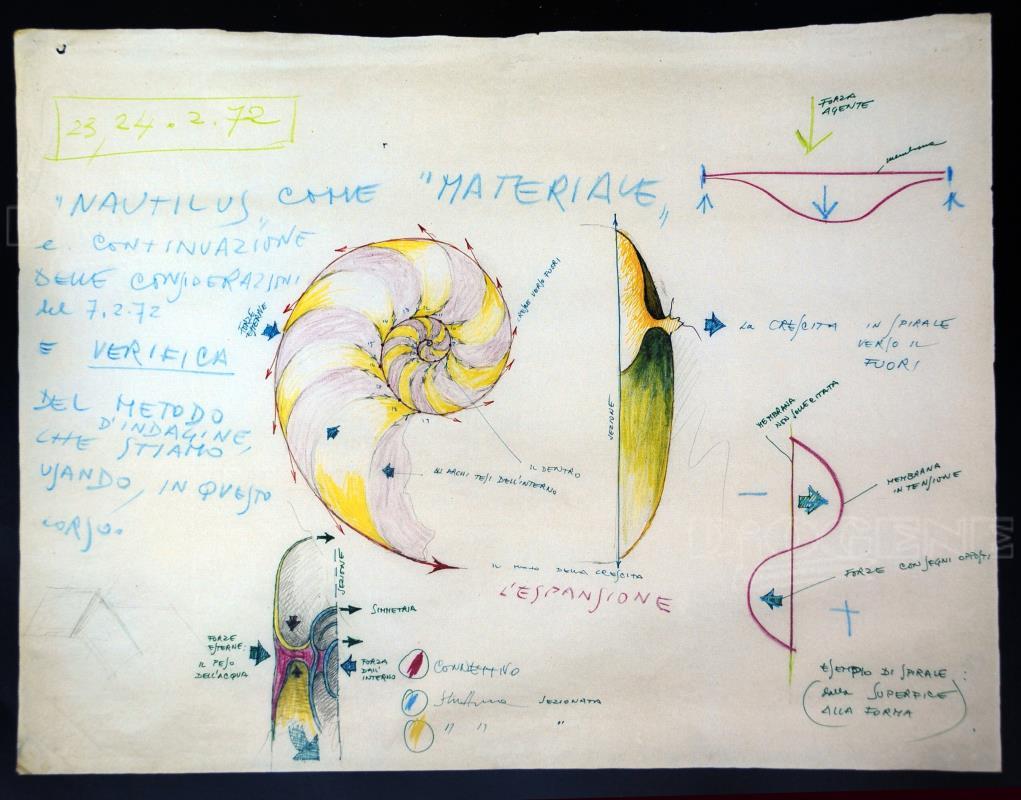 23, 24.2.72
"NAUTILUS" COME "MATERIALE"
e CONTINUAZIONE
DELLE CONSIDERAZIONI
del 7.2.72
E VERIFICA
DEL METODO
D'INDAGINE,
CHE STIAMO
USANDO, IN QUESTO
CORSO.
FORZA
AGENTE
membrana
FORZE
ESTERNE
VERSO FUORI
LA CRESCITA IN SPIRALE
VERSO IL
FUORI
SEZIONE
IL DENTRO
GLI ARCHI TESI DELL'INTERNO
MEMBRANA
NON SOLLECITATA
MEMBRANA
IN TENSIONE
FORZE CON SEGNI OPPOSTI
−
+
DELLA CRESCITA
L'ESPANSIONE
SEZIONE
SIMMETRIA
FORZE
ESTERNE:
IL PESO
DELL'ACQUA
FORZA
DALL'
INTERNO
CONNETTIVO
Struttura SEZIONATA
" " "
ESEMPIO DI SPIRALE:
(dalla SUPERFICE
ALLA FORMA)